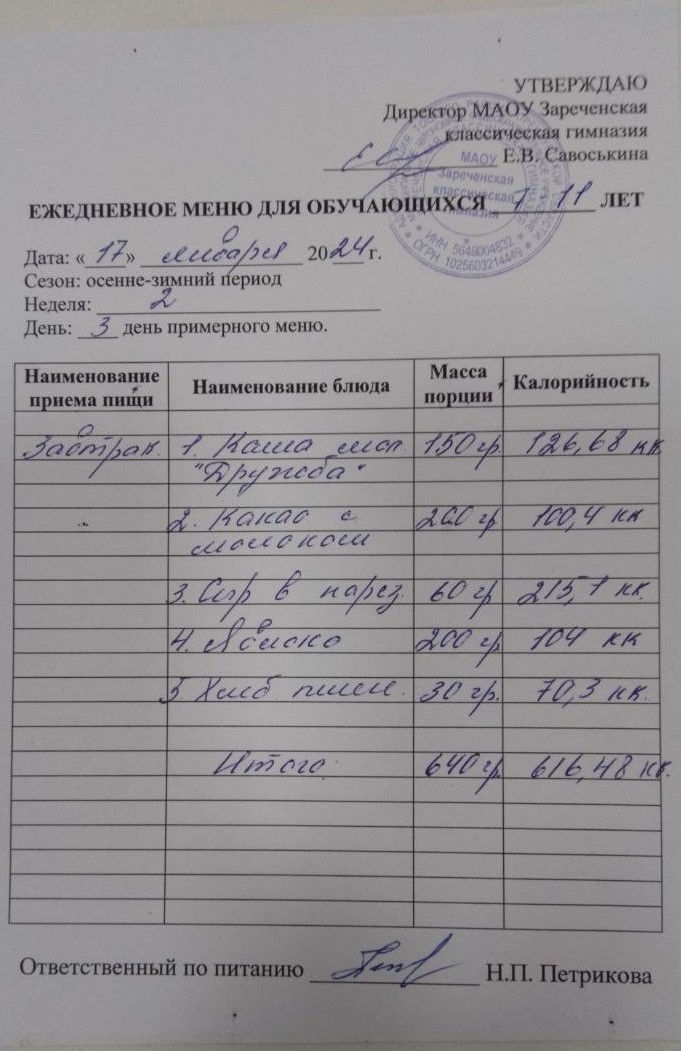 УТВЕРЖДАЮ
Директор МАОУ Зареченская
классическая гимназия
Е.В. Савоськина
МАОУ
Зареченская
классическая
гимназия
ИНН 5649004832
ОГРН 1025603214449
ЕЖЕДНЕВНОЕ МЕНЮ ДЛЯ ОБУЧАЮЩИХСЯ 7-11 ЛЕТ
Дата: «17» января 2024 г.
Сезон: осенне-зимний период
Неделя: 2
День: 3 день примерного меню.
Наименование приема пищи Наименование блюда Масса порции Калорийность
Завтрак. 1. Каша мол. 150 гр. 126,68 кк
"Дружба"
2. Какао с 200 гр 100,4 кк
молоком
3. Сыр в нарез. 60 гр 215,1 кк.
4. Яблоко 200 гр 104 кк
5. Хлеб пшен. 30 гр. 70,3 кк.
Итого: 640 гр. 616,48 кк.
Ответственный по питанию Н.П. Петрикова